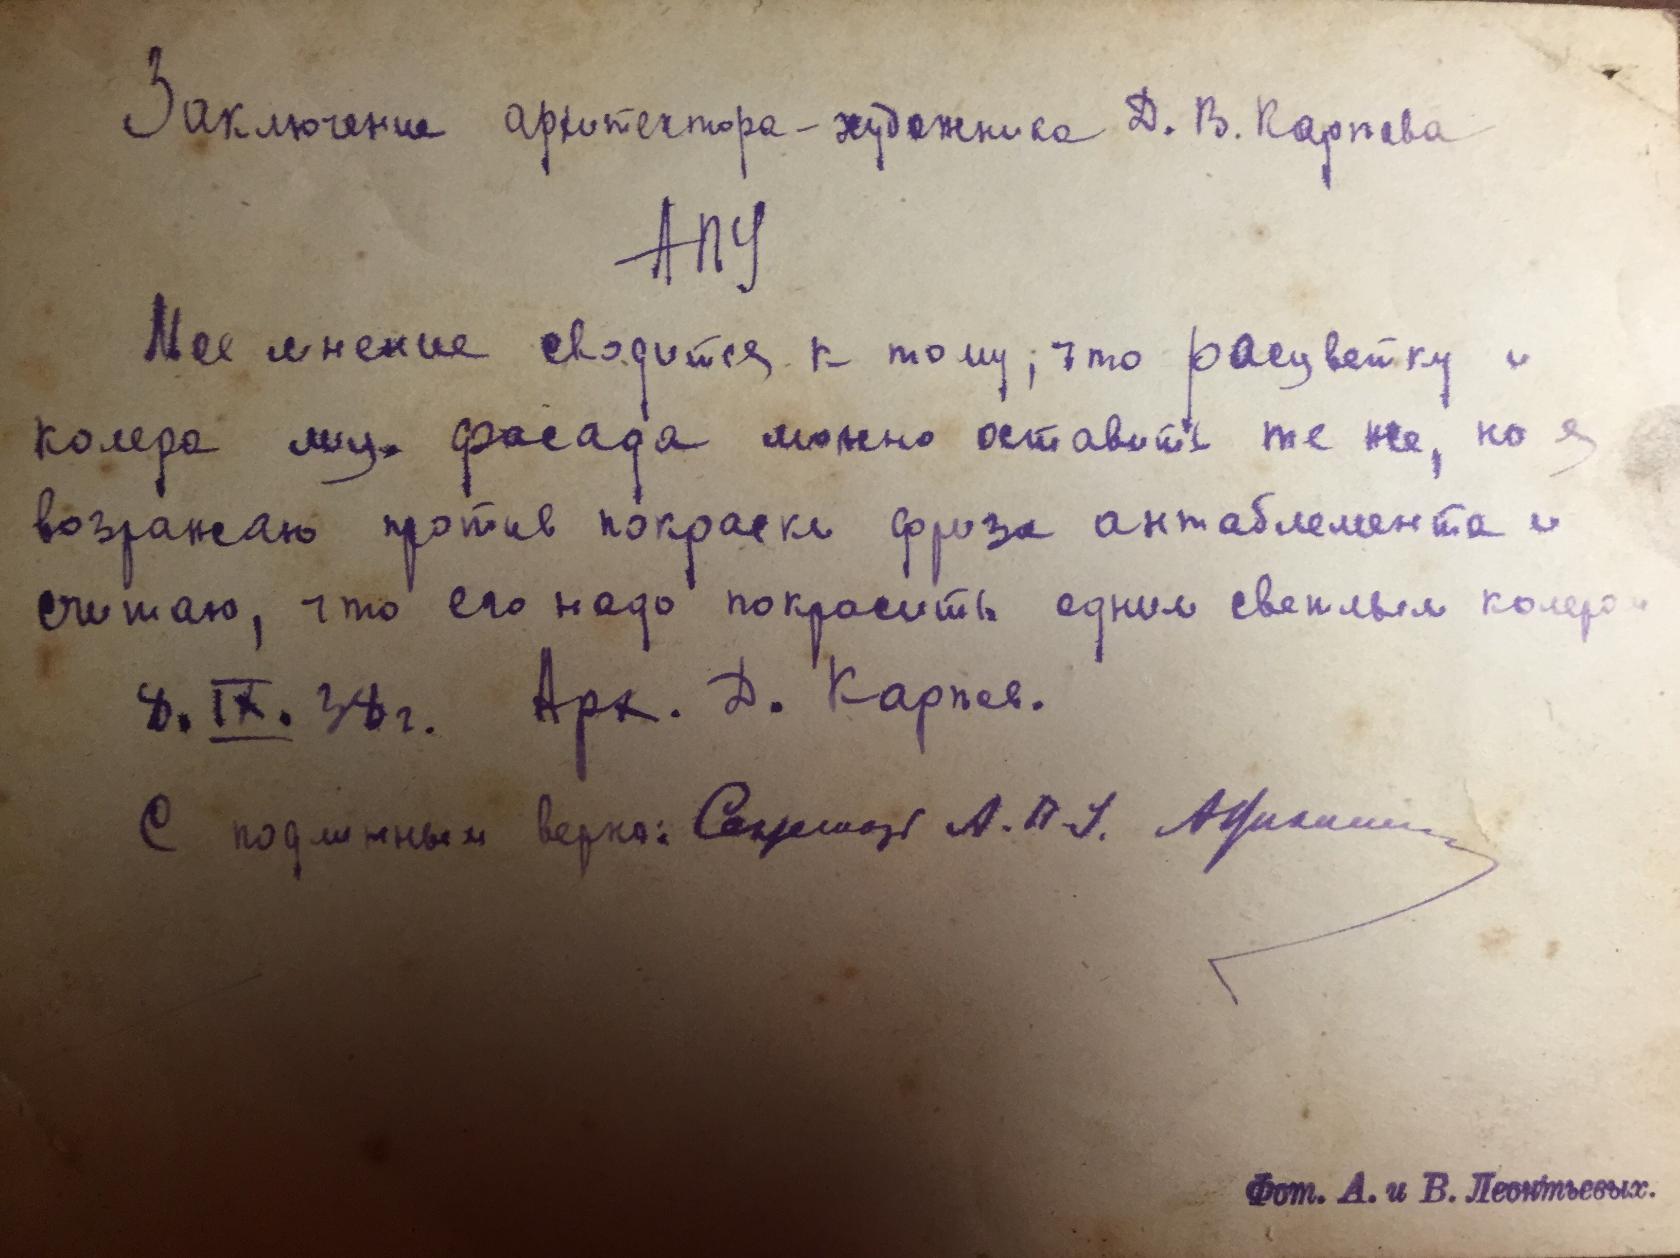 Заключение архитектора-художника Д. В. Карпова
АПУ
Мое мнение сводится к тому, что расцветку и
колера лиц. фасада можно оставить те же, но я
возражаю против покраски фриза антаблемента и
считаю, что его надо покрасить одним светлым колером
8. IX. 38 г. Арх. Д. Карпов.
С подлинным верно: Секретарь А.П.У.
Фот. А. и В. Леонтьевых.